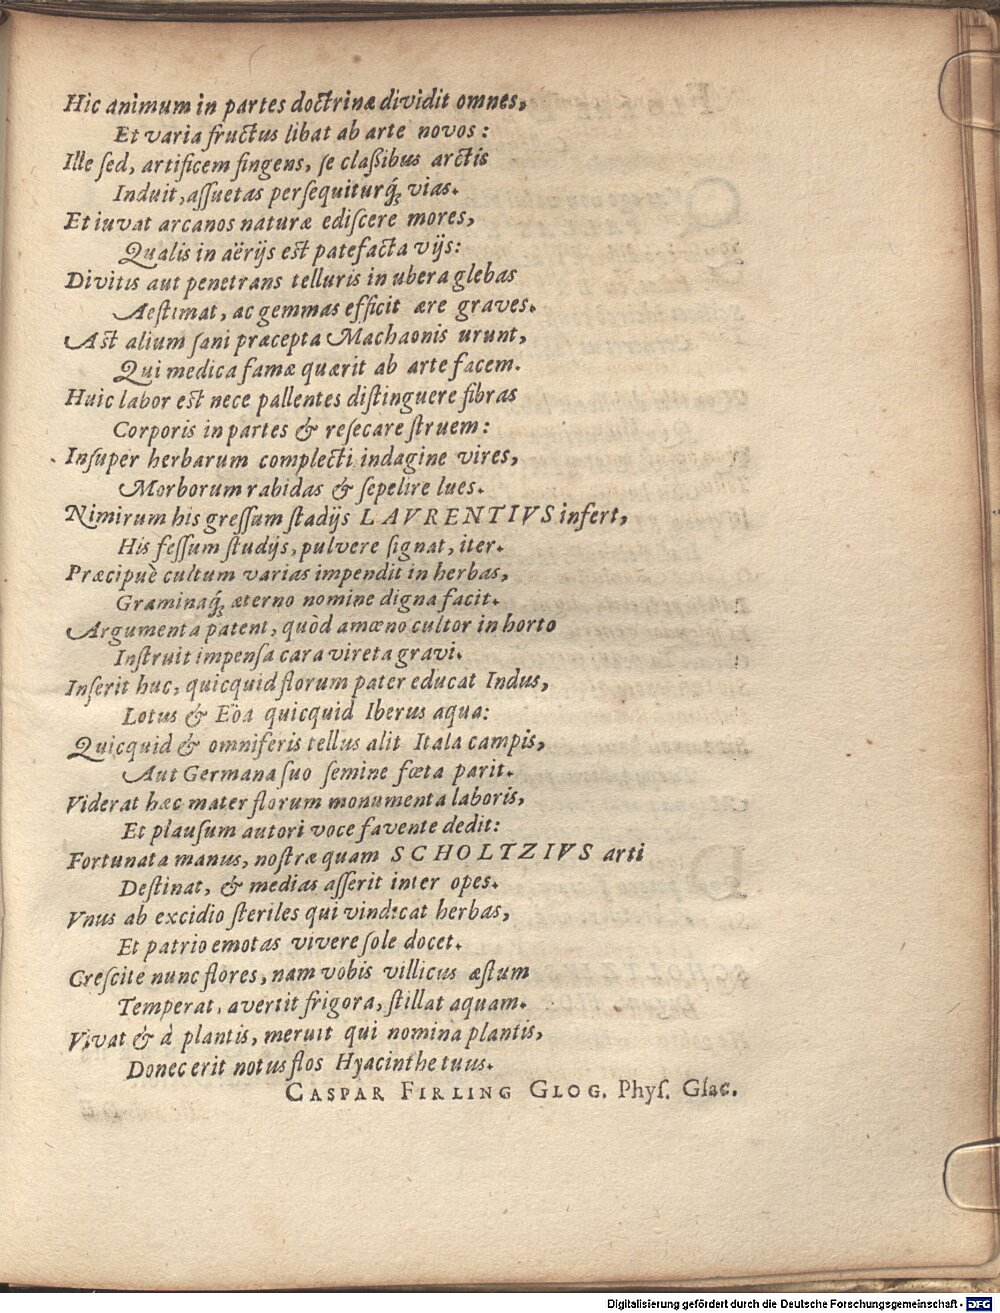 Hic animum in partes doctrinæ dividit omnes,
Et varia fructus libat ab arte novos:
Ille ſed, artificem fingens, ſe claßibus arctis
Induit, aſſuetas perſequiturq́; vias.
Et iuvat arcanos naturæ ediſcere mores,
Qualis in aërijs est patefacta vijs:
Divitis aut penetrans telluris in ubera glebas
Aeſtimat, ac gemmas efficit ære graves.
Ast alium ſani præcepta Machaonis urunt,
Qui medica famæ quærit ab arte facem.
Huic labor est nece pallentes diſtinguere fibras
Corporis in partes & reſecare ſtruem:
Inſuper herbarum complecti indagine vires,
Morborum rabidas & ſepelire lues.
Nimirum his greſſum ſtadijs LAVRENTIVS infert,
His feſſum ſtudijs, pulvere ſignat, iter.
Præcipuè cultum varias impendit in herbas,
Graminaq́; æterno nomine digna facit.
Argumenta patent, quòd amœno cultor in horto
Inſtruit impenſa cara vireta gravi.
Inſerit huc, quicquid florum pater educat Indus,
Lotus & Eöa quicquid Iberus aqua:
Quicquid & omniferis tellus alit Itala campis,
Aut Germana ſuo ſemine fœta parit.
Viderat hæc mater florum monumenta laboris,
Et plauſum autori voce favente dedit:
Fortunata manus, noſtræ quam SCHOLTZIVS arti
Deſtinat, & medias aſſerit inter opes.
Vnus ab excidio ſteriles qui vindicat herbas,
Et patrio emotas vivere ſole docet.
Creſcite nunc flores, nam vobis villicus æſtum
Temperat, avertit frigora, ſtillat aquam.
Vivat & à plantis, meruit qui nomina plantis,
Donec erit notus flos Hyacinthe tuus.
CASPAR FIRLING GLOG. Phyſ. Glac.
Digitalisierung gefördert durch die Deutsche Forschungsgemeinschaft - DFG